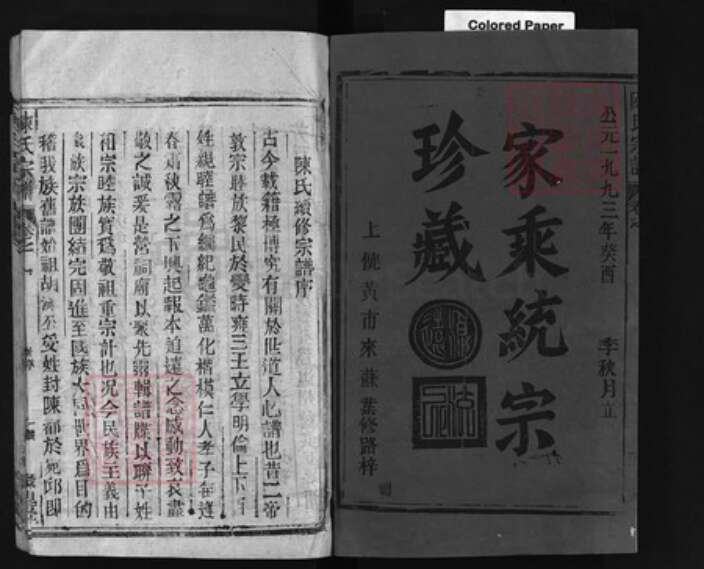 Colored Paper
公元一九九三年癸酉 季秋月立
家乘統宗
珍藏
上饒黃市來蘇葉修路梓
陳氏續修宗譜序
古今載籍極博究有關於世道人心譜也昔二帝
敦宗睦族黎民於變時雍三王立學明倫上下
姓親睦譜為綱紀龜鑑萬化楷模仁人孝子每逢
春霜秋露之下興起報本追遠之念感動致哀盡
敬之誠爰是營祠廟以聚先靈輯譜牒以聯子姓
和宗睦族實為敬祖重宗計也況今民族主義由
族宗族團結完固進至國族大同世界為目的
稽我族舊譜始祖胡滿公媯姓封陳都於宛邱即
陳氏宗譜